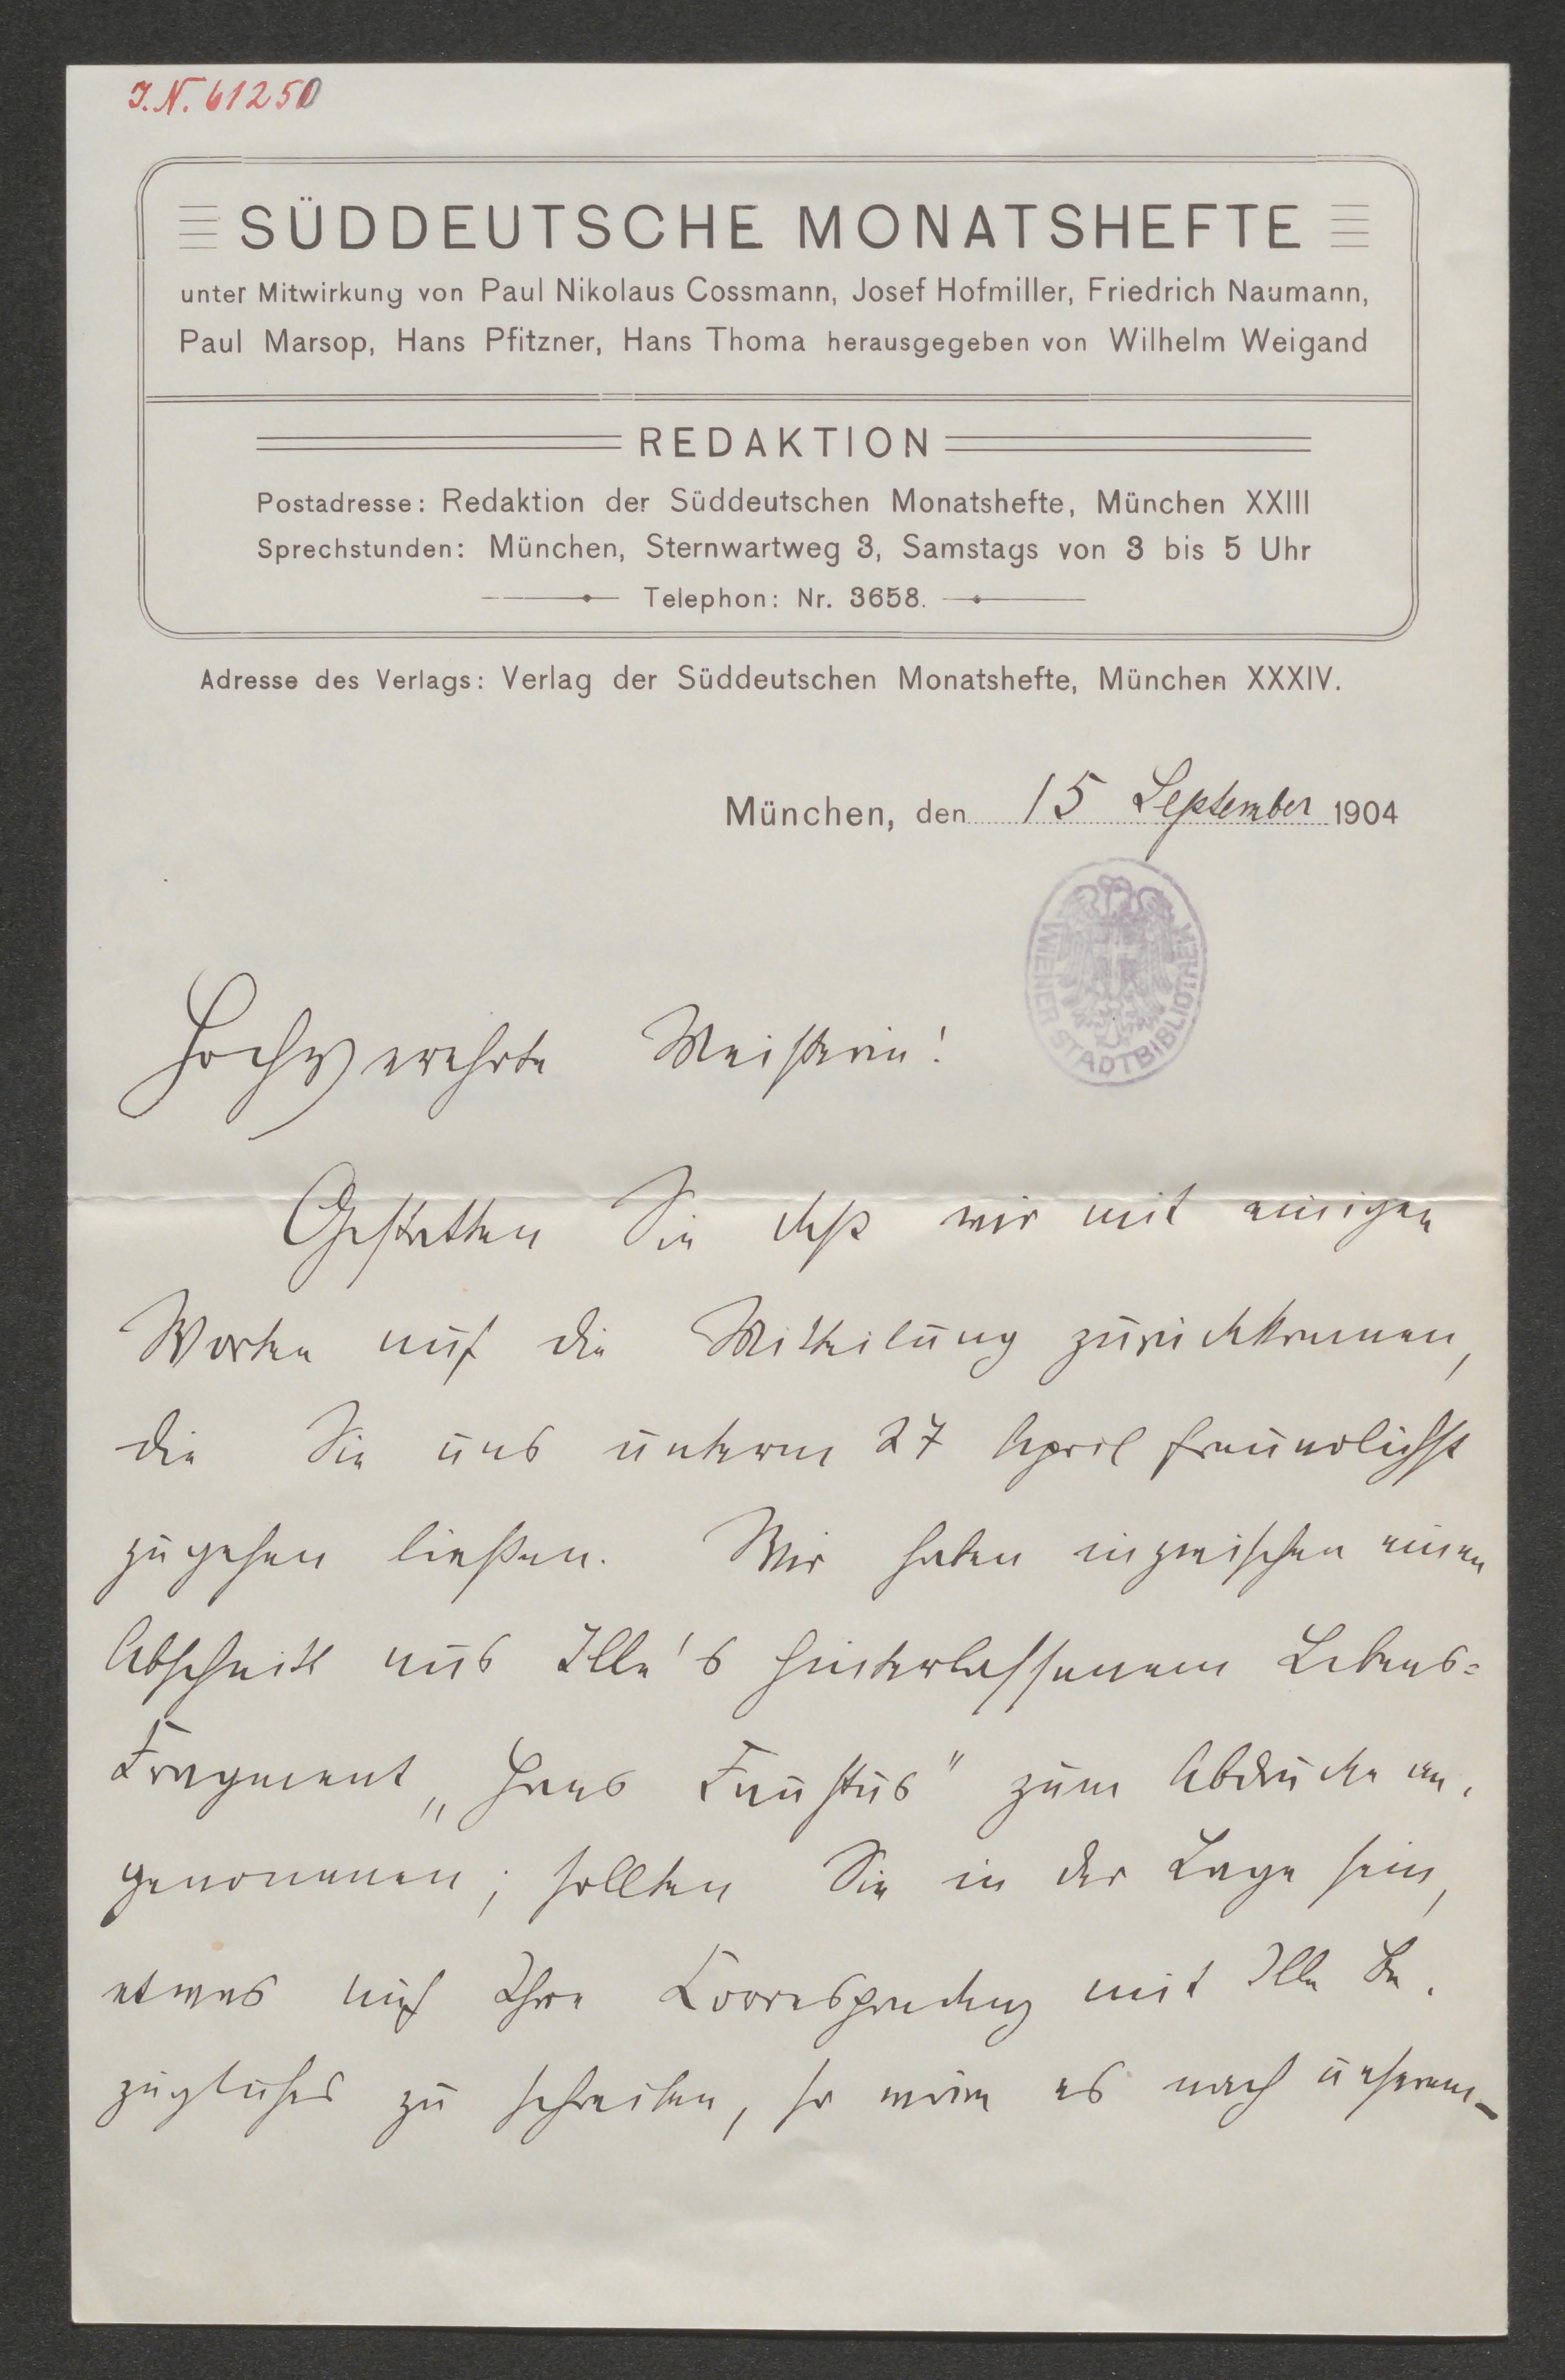 J.N. 61250
SÜDDEUTSCHE MONATSHEFTE
unter Mitwirkung von Paul Nikolaus Cossmann, Josef Hofmiller, Friedrich Naumann,
Paul Marsop, Hans Pfitzner, Hans Thoma herausgegeben von Wilhelm Weigand
REDAKTION
Postadresse: Redaktion der Süddeutschen Monatshefte, München XXIII
Sprechstunden: München, Sternwartweg 3, Samstags von 3 bis 5 Uhr
Telephon: Nr. 3658.
Adresse des Verlags: Verlag der Süddeutschen Monatshefte, München XXXIV.
München, den 15 September 1904
WIENER STADTBIBLIOTHEK
Hochverehrte Meisterin!
Gestatten Sie daß wir mit einigen
Worten auf die Mitteilung zurückkommen,
die Sie uns unterm 27 April freundlichst
zugehen ließen. Wir haben inzwischen einen
Abschnitt aus Ille's hinterlassenem Lebens=
Fragment „Hans Faustus" zum Abdrucke an-
genommen; sollten Sie in der Lage sein,
etwas auf Ihre Correspondenz mit Ille Be-
zügliches zu schreiben, so wäre es nach unserem